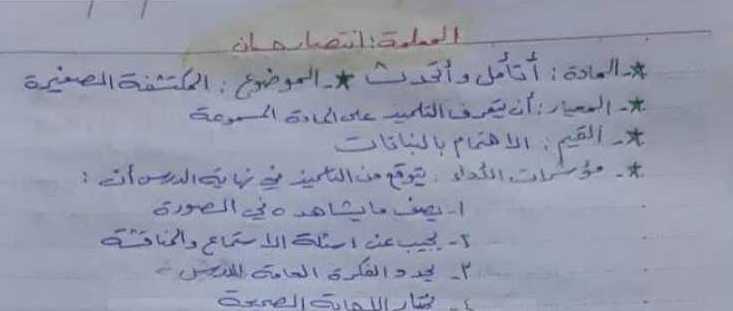 المعلمة: انتصار حسان
*- المادة: أتأمل وأتحدث *- الموضوع: المكتشفة الصغيرة
*- المعيار: أن يتعرف التلميذ على المادة المسموعة
*- القيم: الاهتمام بالنباتات
*- مؤشرات الأداء: يتوقع من التلميذ في نهاية الدرس أن:
١- يصف ما يشاهده في الصورة
٢- يجيب عن اسئلة الاستماع والمناقشة
٣- يحدد الفكرة العامة للدرس
٤- يختار الاجابة الصحيحة